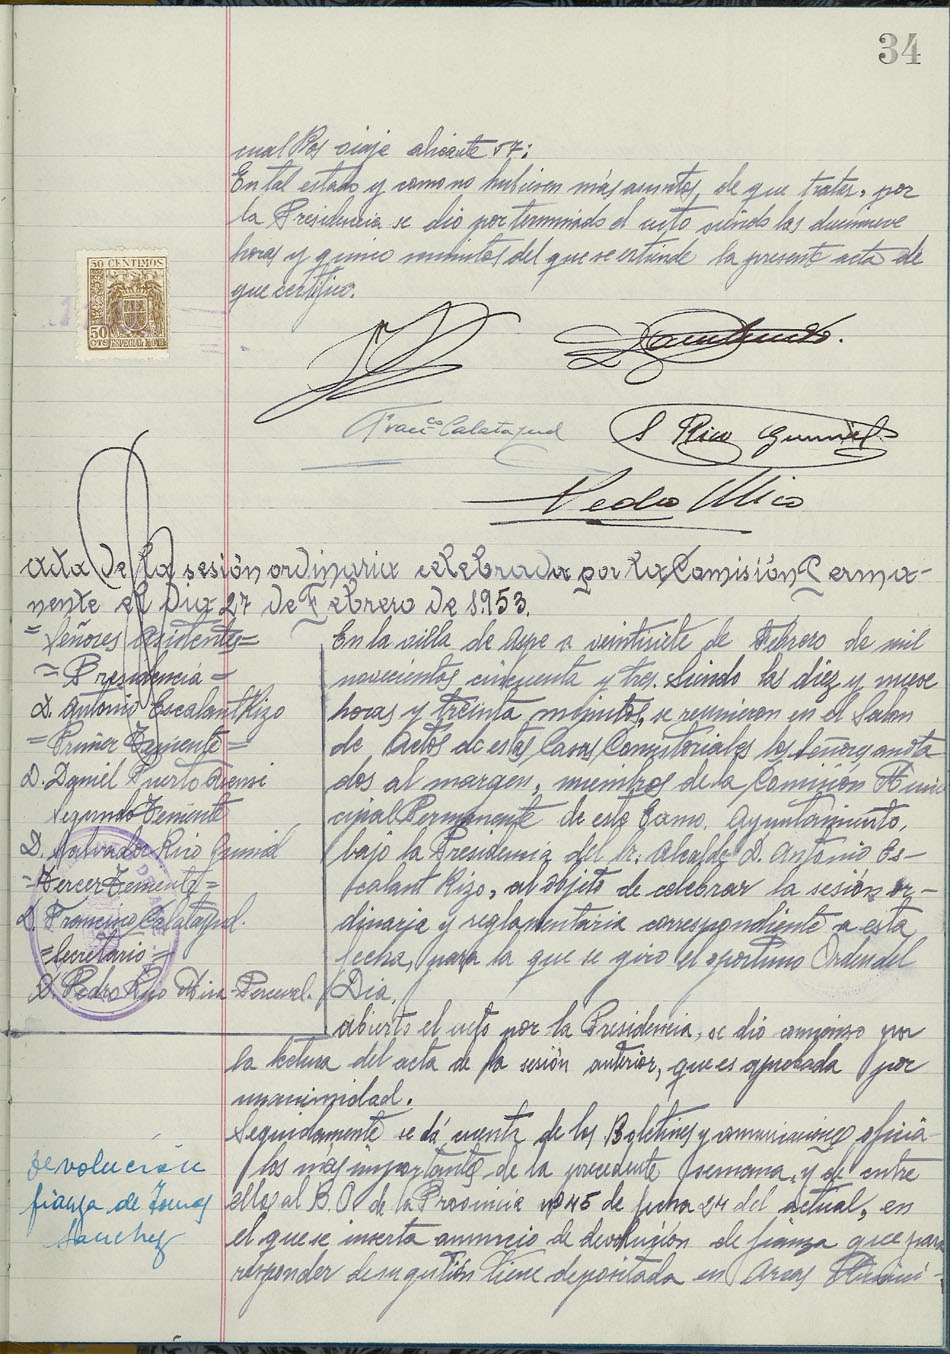 34
viaje alicante 57;
En tal estado y como no hubiesen más asuntos, de que tratar, por
la Presidencia se dio por terminado el acto siendo las diecinueve
horas y quince minutos del que se extiende la presente acta de
que certifico.
50 CENTIMOS
50
CTS ESPECIAL MOVIL
Franco Calatayud
S Rico
Pedro Mico
acta de la sesión ordinaria celebrada por la Comisión Perma-
nente el dia 27 de Febrero de 1953.
=Señores asistentes=
=Presidencia=
D. Antonio Escalant Rizo
=Primer Teniente=
D. Daniel Puerto
Segundo Teniente
D. Salvador Rico
=Tercer Teniente=
D. Francisco Calatayud.
=Secretario=
D. Pedro Rico Mira-Perceval.
En la villa de Aspe a veintisiete de Febrero de mil
novecientos cincuenta y tres. Siendo las diez y nueve
horas y treinta minutos, se reunieron en el Salon
de Actos de estas Casas Consistoriales los Señores anota
dos al margen, miembros de la Comisión Muni
cipal Permanente de este Ayuntamiento,
bajo la Presidencia del Sr. Alcalde D. Antonio Es-
calant Rizo, al objeto de celebrar la sesión or-
dinaria y reglamentaria correspondiente a esta
fecha, para la que se giro el oportuno Orden del
Dia.
abierto el acto por la Presidencia, se dio comienzo por
la lectura del acta de la sesión anterior, que es aprobada por
unanimidad.
Seguidamente se dá cuenta de los Boletines y comunicaciones oficia-
les más importantes de la precedente semana, y de entre
ellos al B.O. de la Provincia nº 45 de fecha 24 del actual, en
el que se inserta anuncio de devolución de fianza que para
responder de su gestión tiene depositada en Arcas Munici-
devolución
fianza de Tomas
Sanchez